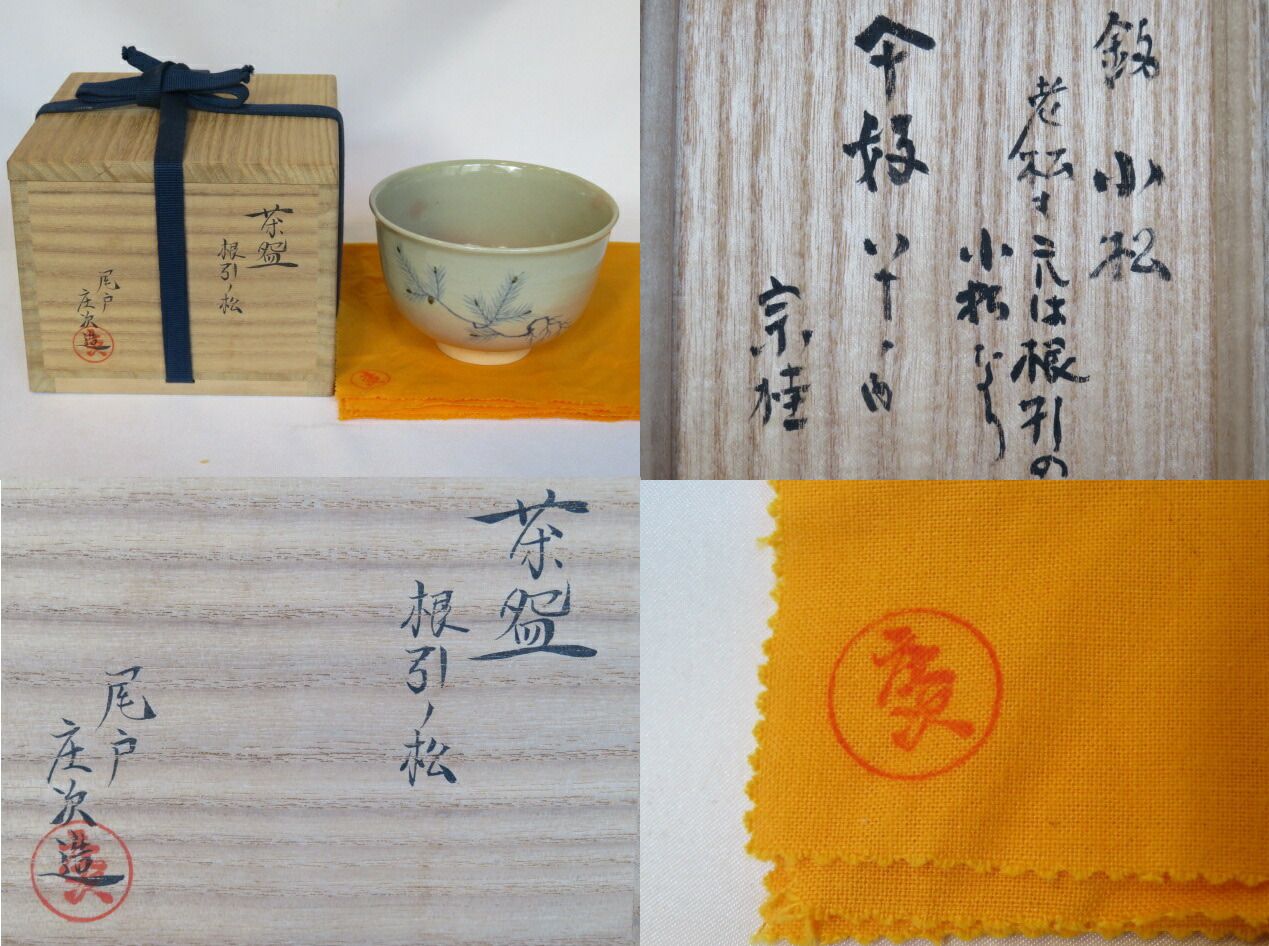 茶盌
根引ノ松
尾戸
庄次造
銘 小松
老松も元は根引の
小松なり
宗桂
茶盌
根引ノ松
尾戸
庄次造